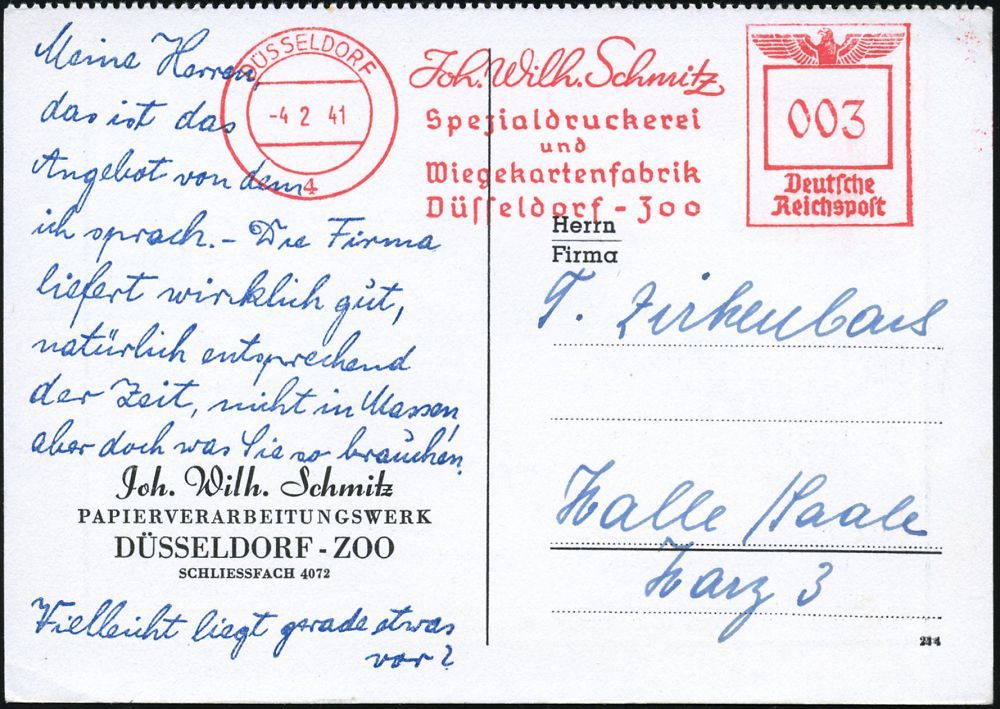 Meine Herren,
das ist das
Angebot von dem
ich sprach. – Die Firma
liefert wirklich gut,
natürlich entsprechend
der Zeit, nicht in Massen,
aber doch was Sie so brauchen.
Joh. Wilh. Schmitz
PAPIERVERARBEITUNGSWERK
DÜSSELDORF - ZOO
SCHLIESSFACH 4072
Vielleicht liegt gerade etwas
vor?
DÜSSELDORF
-4 2 41
4
Joh. Wilh. Schmitz
Spezialdruckerei
und
Wiegekartenfabrik
Düsseldorf - Zoo
003
Deutsche
Reichspost
Herrn
Firma
T. Zirkenbach
Halle / Saale
Harz 3
234